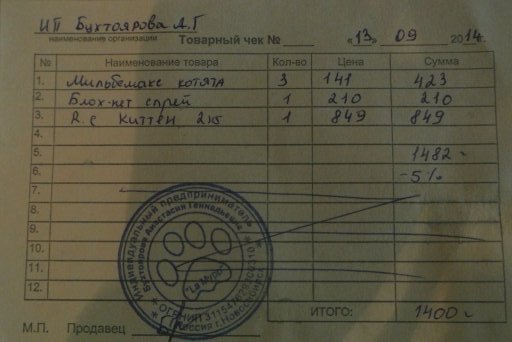 ИП Бухтоярова А.Г
наименование организации
Товарный чек № «13» 09 2014г.
№ Наименование товара Кол-во Цена Сумма
1. Мильбемакс котята 3 141 423
2. Блох-нет спрей 1 210 210
3. R.c Киттен 2кг 1 849 849
4.
5. 1482
6. -5%
7.
8.
9.
10.
11.
12.
ИТОГО: 1400
М.П. Продавец
Индивидуальный предприниматель
Бухтоярова Анастасия Геннадьевна
"La Мурр"
Россия г.Новосибирск